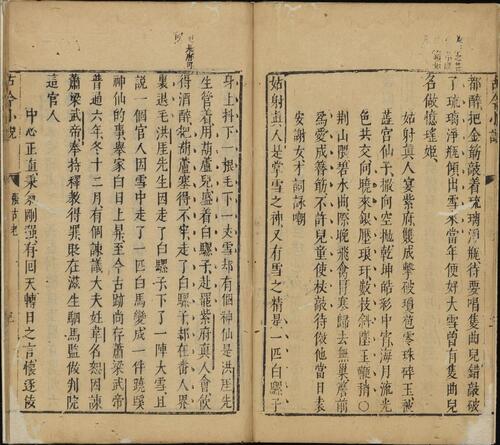 都醉把金筯敲着琉璃淨瓶待要唱隻曲兒錯敲破
了琉璃淨瓶傾出雪來當年便好大雪曾有隻曲兒
名做憶瑤姬
姑射真人宴紫府雙成擊破瓊苞零珠碎玉被
蕊宮仙子撒向空拋乾坤皓彩中宵海月流光
色共交向曉來銀壓琅玕數枝斜墜玉鞭稍
荆山隈碧水曲際晚飛禽冒寒歸去無巢簷前
爲愛成簪筯不許兒童使杖敲待效他當日袁
安謝女才詞咏嘲
姑射真人是掌雪之神又有雪之精是一匹白騾子
身上抖下一根毛下一丈雪却有個神仙是洪厓先
生管着用葫蘆兒盛着白騾子赴罷紫府真人會飲
得酒醉把葫蘆塞得不牢走了白騾子却在番人界
裏退毛洪厓先生因走了白騾子下了一陣大雪且
說一個官人因雪中走了一匹白馬變成一件蹺蹊
神仙的事舉家白日上昇至今古跡尚存蕭梁武帝
普通六年冬十二月有個諫議大夫姓韋名恕因諫
蕭梁武帝奉持釋教得罪貶在滋生駟馬監做判院
這官人
中心正直秉氣剛強有回天轉日之言懷逐佞
古今小說